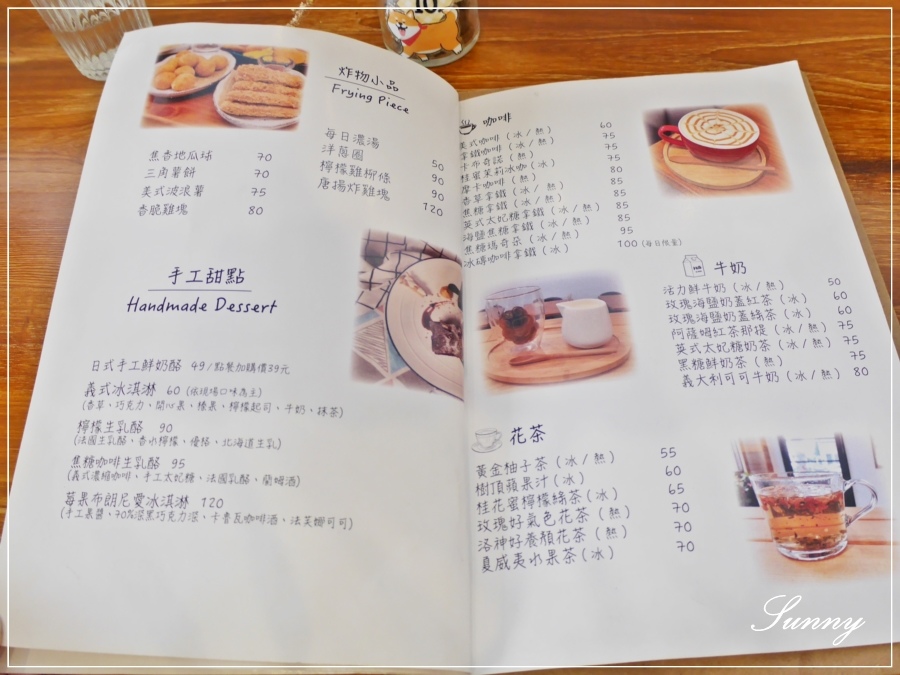 炸物小品
Frying Piece
焦香地瓜球 70
三角薯餅 70
美式波浪薯 75
香脆雞塊 80
每日濃湯 50
洋蔥圈 90
檸檬雞柳條 90
唐揚炸雞塊 120
手工甜點
Handmade Dessert
日式手工鮮奶酪 49/點餐加購價39元
義式冰淇淋 60 (依現場口味為主)
(香草、巧克力、開心果、榛果、檸檬起司、牛奶、抹茶)
檸檬生乳酪 90
(法國生乳酪、香水檸檬、優格、北海道生乳)
焦糖咖啡生乳酪 95
(義式濃縮咖啡、手工太妃糖、法國乳酪、蘭姆酒)
莓果布朗尼愛冰淇淋 120
(手工果醬、70%深黑巧克力、卡魯瓦咖啡酒、法芙娜可可)
咖啡
美式咖啡 (冰/熱) 60
拿鐵咖啡 (冰/熱) 75
卡布奇諾 (熱) 75
桂蜜茉莉冰咖 (冰) 75
摩卡咖啡 (熱) 80
香草拿鐵 (冰/熱) 85
焦糖拿鐵 (冰/熱) 85
英式太妃糖拿鐵 (冰/熱) 85
海鹽焦糖拿鐵 (冰/熱) 85
焦糖瑪奇朵 (冰/熱) 95
冰磚咖啡拿鐵 (冰) 100 (每日限量)
牛奶
活力鮮牛奶 (冰/熱) 50
玫瑰海鹽奶蓋紅茶 (冰) 60
玫瑰海鹽奶蓋綠茶 (冰) 60
阿薩姆紅茶那提 (冰/熱) 75
英式太妃糖奶茶 (冰/熱) 75
黑糖鮮奶茶 (熱) 75
義大利可可牛奶 (冰/熱) 80
花茶
黃金柚子茶 (冰/熱) 55
樹頂蘋果汁 (冰) 60
桂花蜜檸檬綠茶 (冰) 65
玫瑰好氣色花茶 (熱) 70
洛神好養顏花茶 (熱) 70
夏威夷水果茶 (冰) 70
Sunny